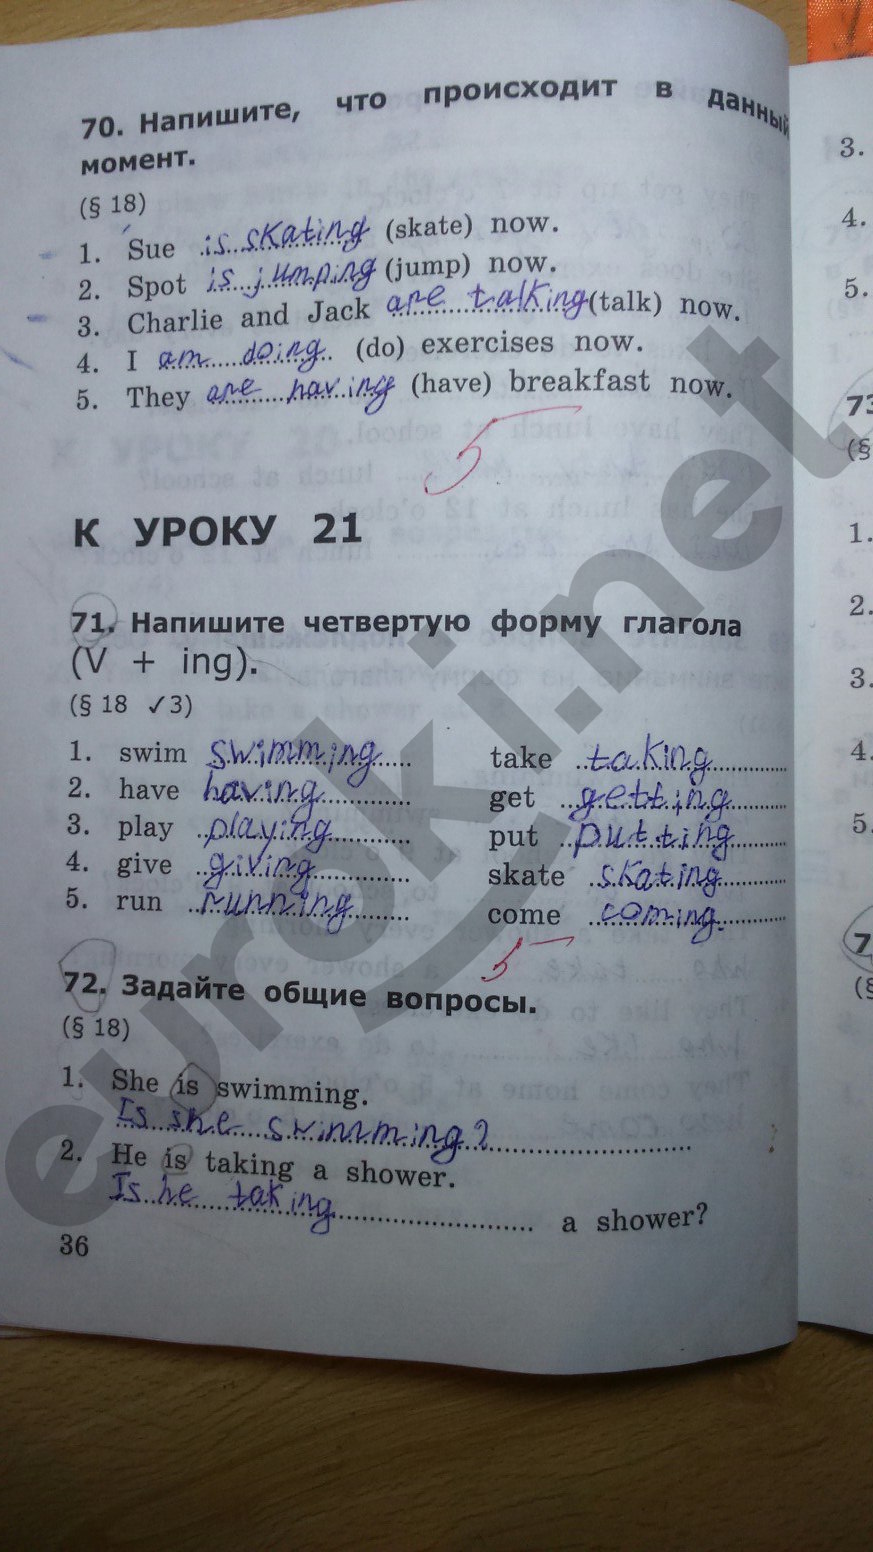 70. Напишите, что происходит в данный
момент.
(§ 18)
1. Sue is skating (skate) now.
2. Spot is jumping (jump) now.
3. Charlie and Jack are talking (talk) now.
4. I am doing (do) exercises now.
5. They are having (have) breakfast now.
5
К УРОКУ 21
71. Напишите четвертую форму глагола
(V + ing).
(§ 18 ✓3)
1. swim swimming take taking
2. have having get getting
3. play playing put putting
4. give giving skate skating
5. run running come coming
5
72. Задайте общие вопросы.
(§ 18)
1. She is swimming.
Is she swimming?
2. He is taking a shower.
Is he taking a shower?
36
3.
4.
5.
73
(§
1.
2.
3.
4.
5.
7
(§
euroki.net